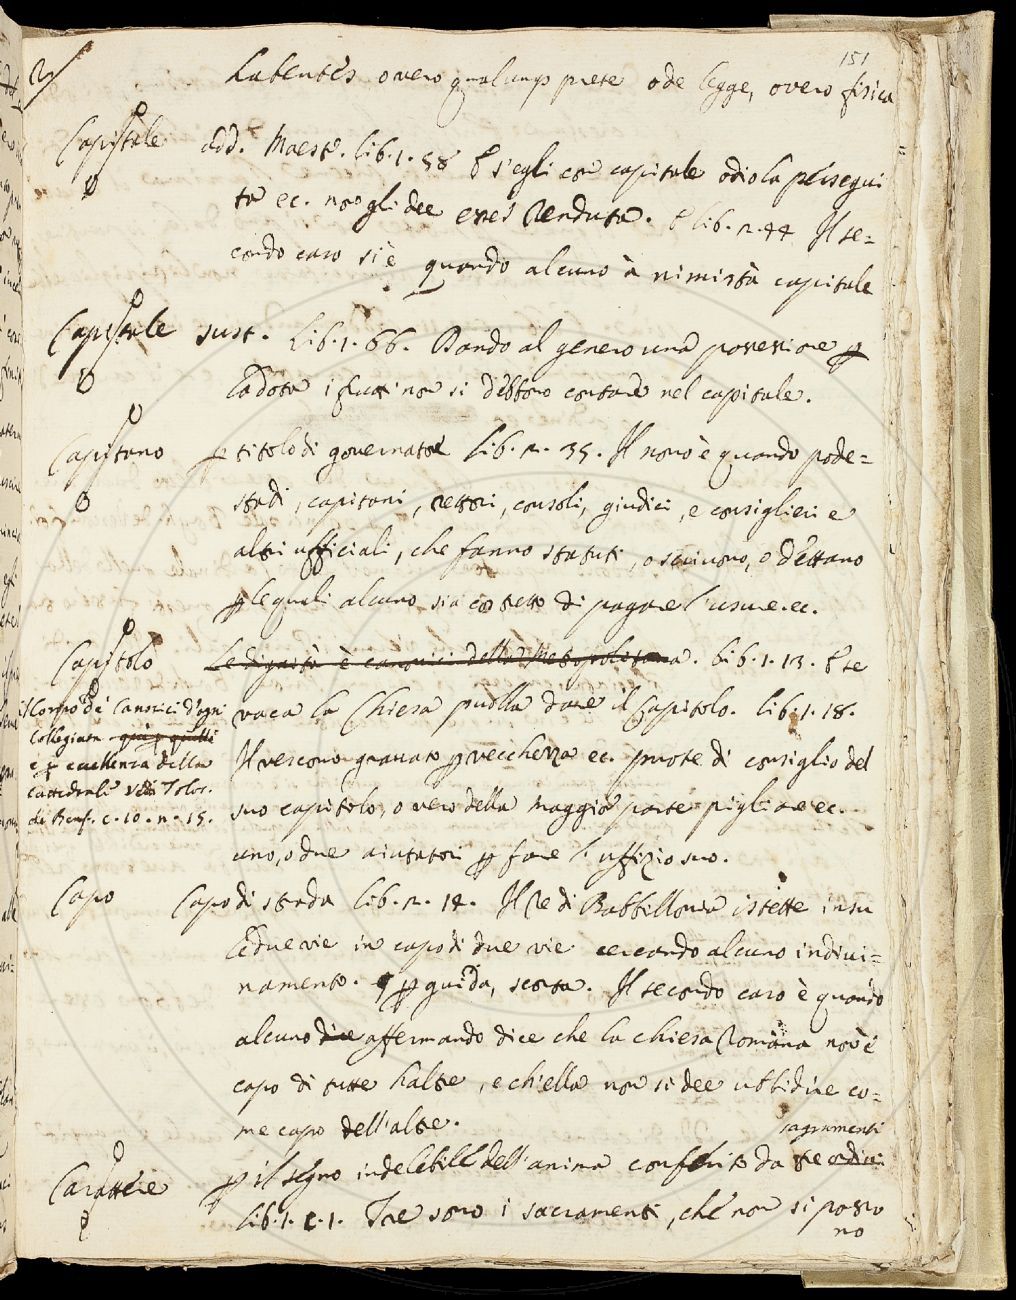 151
2/
Labentes overo qualunq prete o de legge, overo fisica
Capitale add. Maest. lib. 1. 58 E s'egli con capitale odio la persegui
ta ec. non gli dee esser renduta. E lib. 2. 44 Il se=
condo caso si è quando alcuno à nimistà capitale
Capitale sust. Lib. 1. 66. Dando al genero una possessione p
la dota i frutti non si debbono contare nel capitale.
Capitano p titolo di governatore Lib. 2. 35. Il nono è quando pode=
stadi, capitani, rettori, consoli, giudici, e consiglieri e
altri ufficiali, che fanno statuti, o scrivono, o dettano
p le quali alcuno sia costretto di pagare l'usure. ec.
Capitolo Le dignità è canonici della Metropolitana. Lib. 1. 13. E se
vaca la Chiesa puolla dare il Capitolo. lib. 1. 18.
Il vescovo gravato p vecchezza ec. puote di consiglio del
suo capitolo, o vero della maggior parte pigliare ec.
uno, o due aiutatori p fare l'uffizio suo.
il Corpo de Canonici d'ogni
Collegiata
e p eccellenza della
Cattedrale vedi Tolos.
de Benef. c. 10. n. 15.
Capo Capo di strada Lib. 2. 14. Il Re di Babbillonia istette in su
le due vie in capo di due vie cercando alcuno indivi=
namento. p guida, scorta. Il secondo caso è quando
alcuno dice affermando dice che la chiesa Romana non è
capo di tutte l'altre, e ch'ella non si dee ubbidire co=
me capo dell'altre.
sagramenti
Carattere p il segno indelebile dell'anima conferito da tre ordini
Lib. 1. c. 1. Tre sono i sacramenti, che non si posso
no